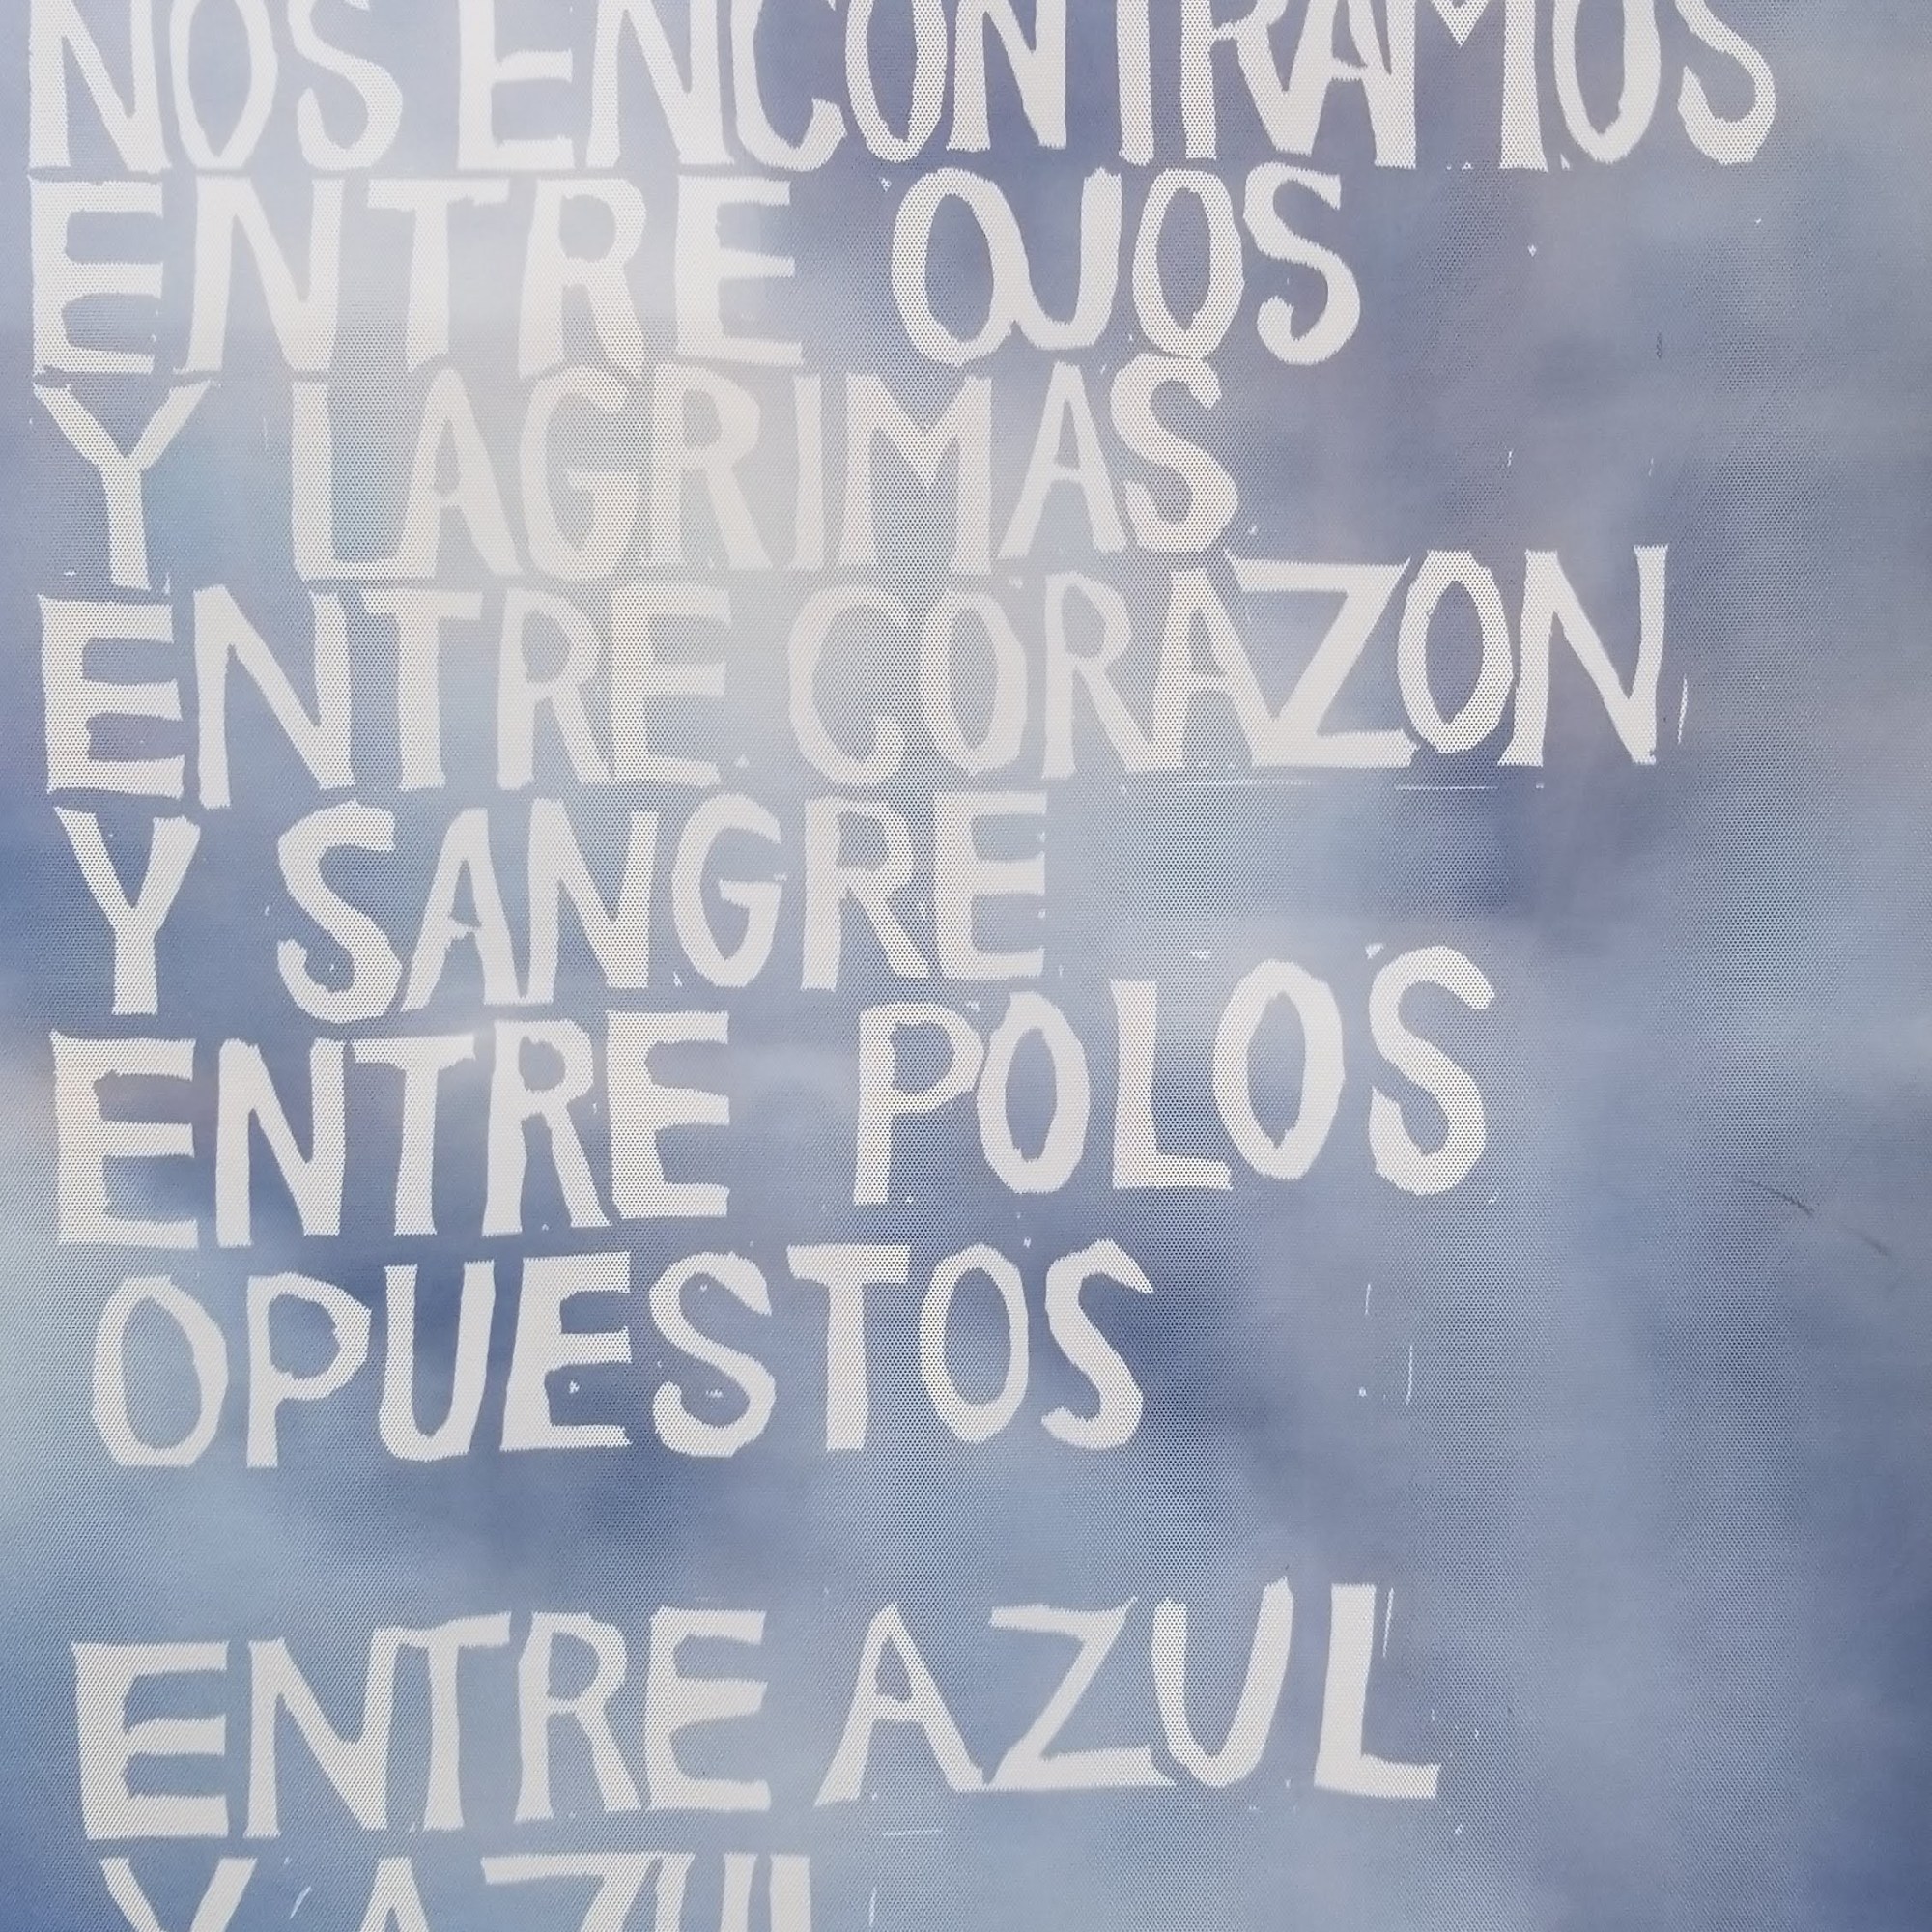 NOS ENCONTRAMOS
ENTRE OJOS
Y LAGRIMAS
ENTRE CORAZON
Y SANGRE
ENTRE POLOS
OPUESTOS
ENTRE AZUL
Y AZUL